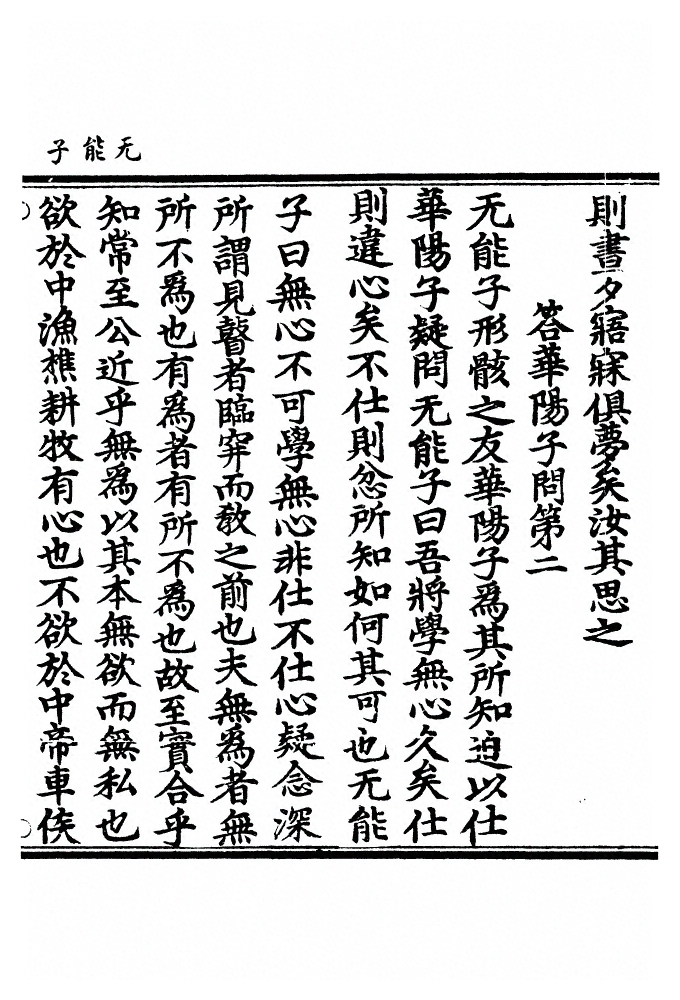 无能子
則晝夕寤寐俱夢矣汝其思之
答華陽子問第二
无能子形骸之友華陽子爲其所知迫以仕
華陽子疑問无能子曰吾將學無心久矣仕
則違心矣不仕則忿所知如何其可也无能
子曰無心不可學無心非仕不仕心疑念深
所謂見瞽者臨穽而教之前也夫無爲者無
所不爲也有爲者有所不爲也故至實合乎
知常至公近乎無爲以其本無欲而無私也
欲於中漁樵耕牧有心也不欲於中帝車侯